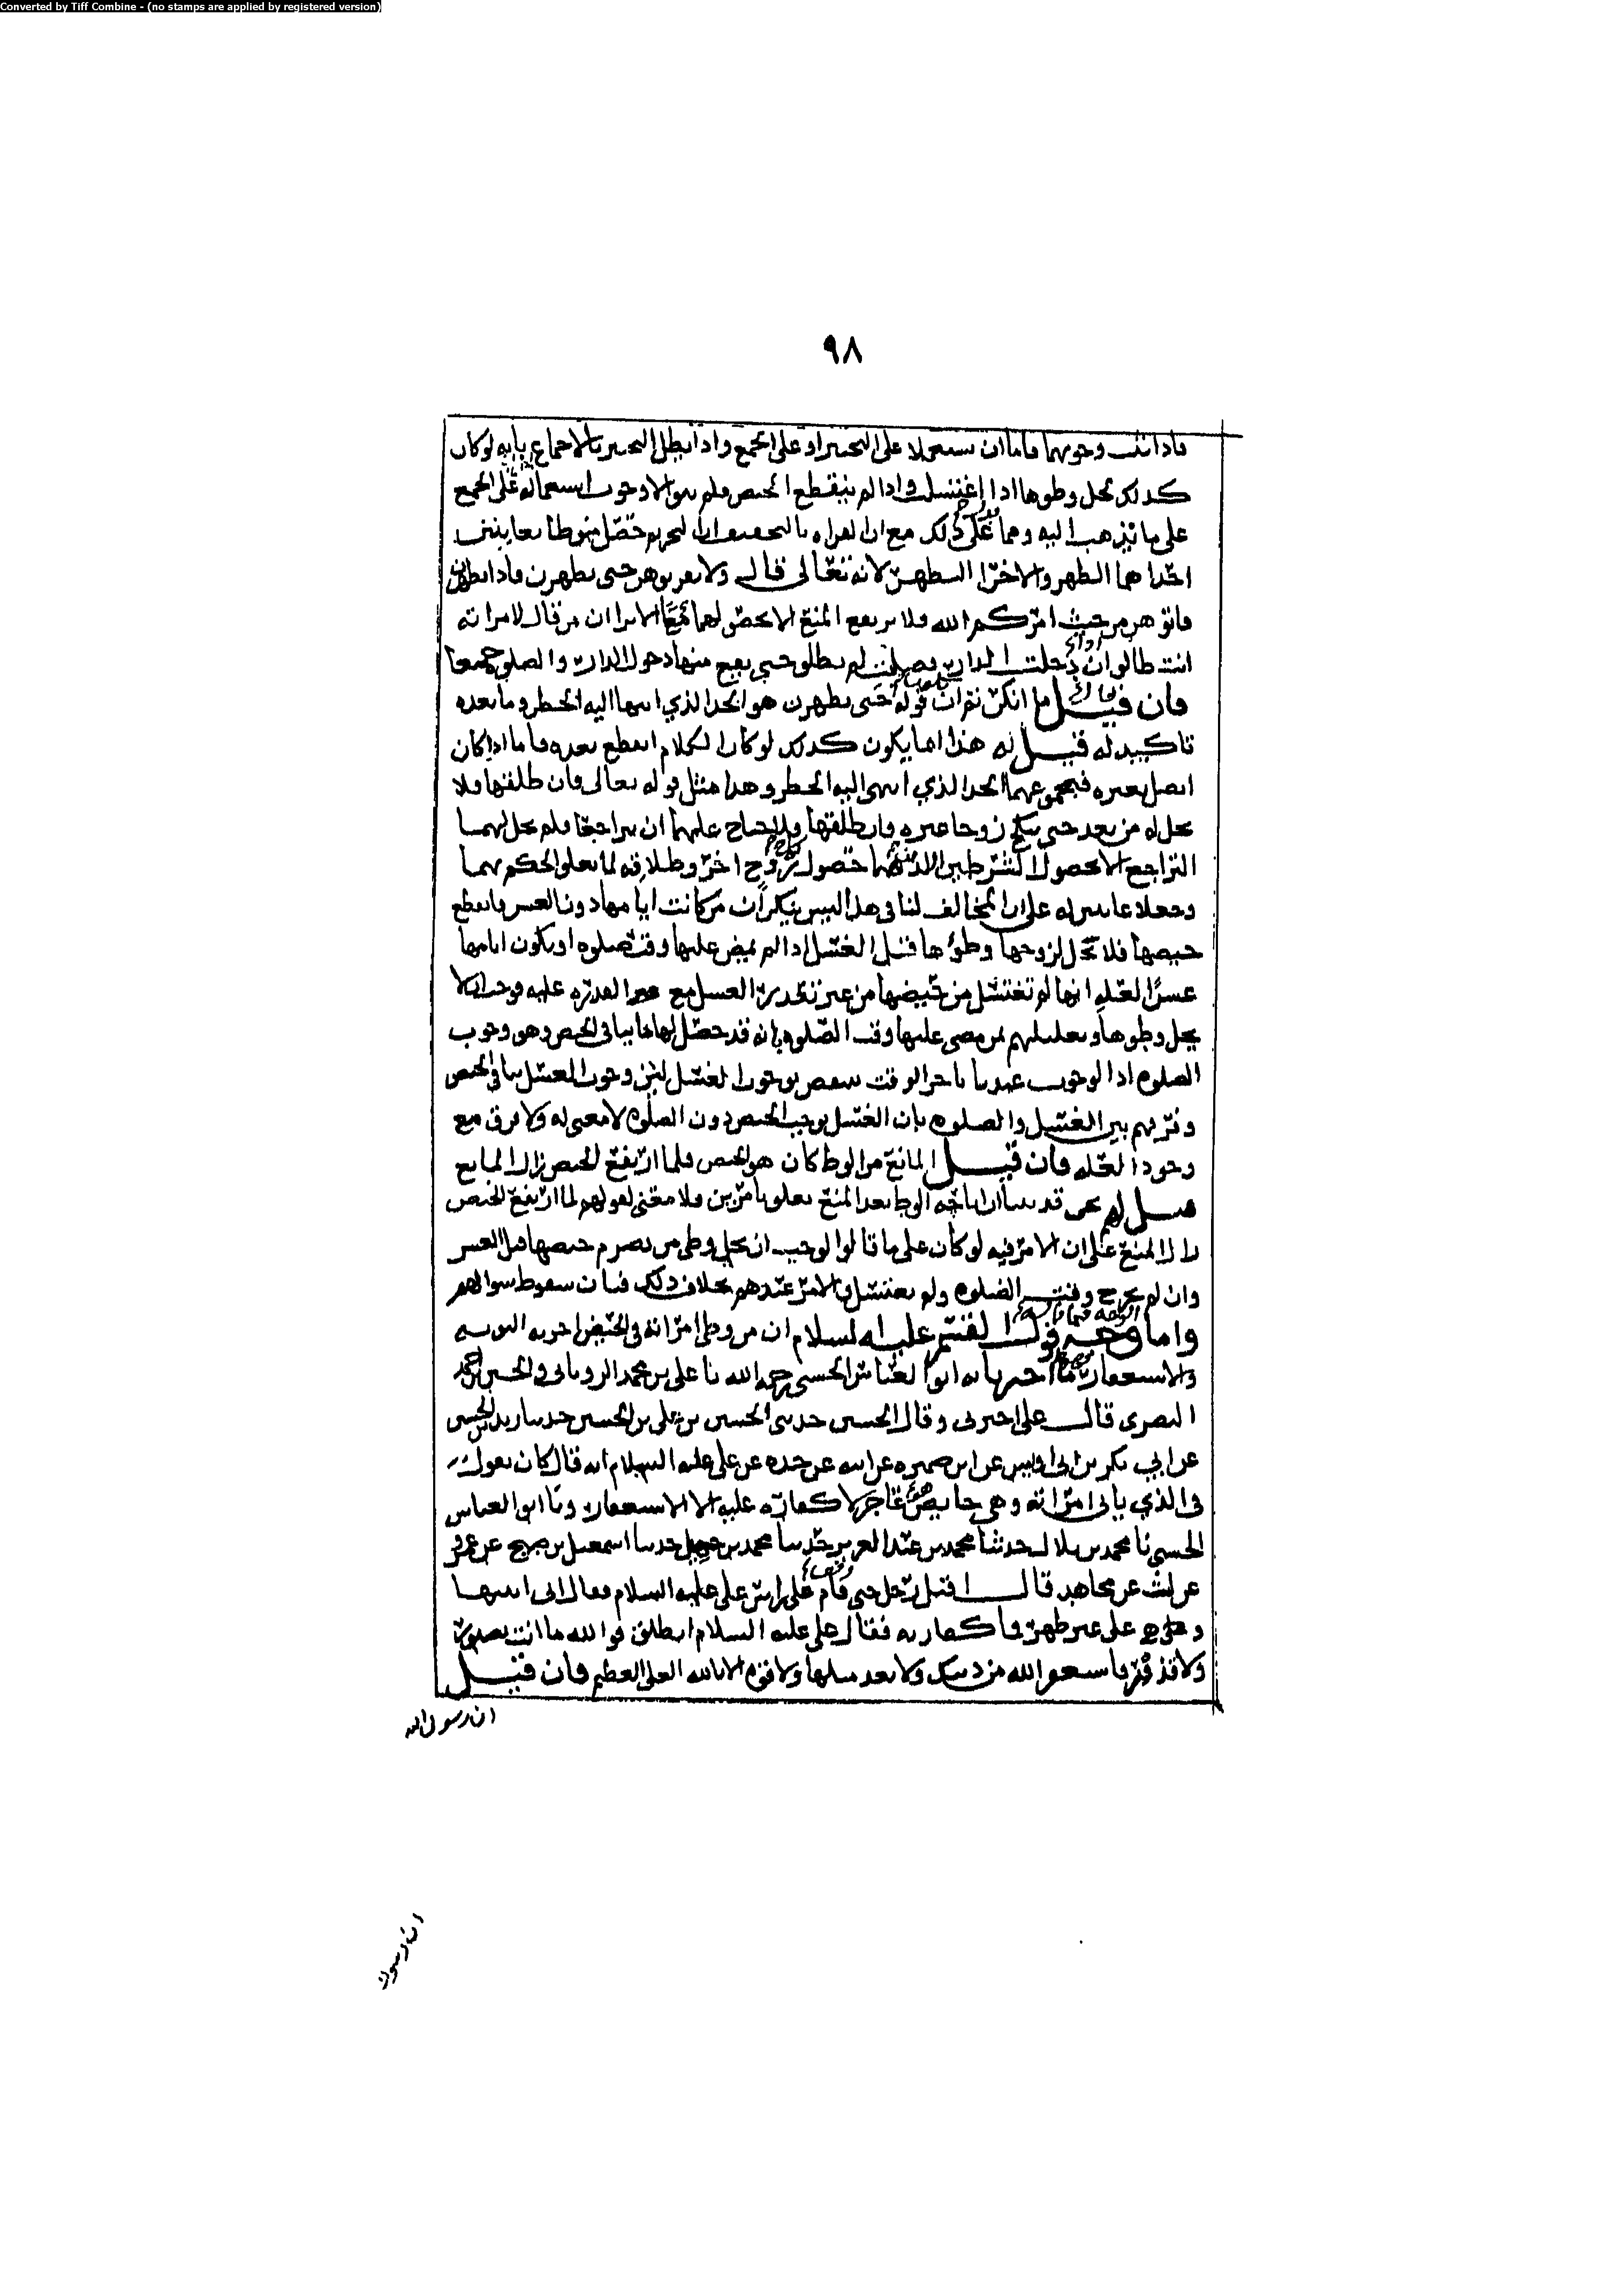 Converted by Tiff Combine - (no stamps are applied by registered version)
٩٨
فاذا ثبت وجوبهما فاما ان يستعملا على التخيير او على الجمع واذا بطل التخيير بالاجماع بانه لو كان
كذلك لحل وطوها اذا اغتسلت واذا لم ينقطع الحيض فلم يبق الا وجوب استعماله على الجمع
على ما نذهب اليه ومما على ذلك مع ان القراه بالتخفيف ان التحريم حصل منوطا بغايتين
احداهما الطهر والاخرا التطهر لانه تعالى قال ولا تقربوهن حتى يطهرن فاذا تطهرن
فاتوهن من حيث امركم الله فلا يرتفع المنع الا بحصولهما معا الا ترا ان من قال لامراته
انت طالق ان دخلت الدار وصليت لم تطلق حتى يقع منها دخول الدار والصلوه جميعا
فان قيل ما انكرتم ان قوله حتى يطهرن هو الحد الذي انتها اليه الحظر وما بعده
تاكيد له قيل له هذا انما يكون كذلك لو كان الكلام انقطع بعده فاما اذا كان
اتصل بغيره فمجموعهما الحد الذي انتهى اليه الحظر وهذا مثل قوله تعالى فان طلقها فلا
تحل له من بعد حتى تنكح زوجا غيره فان طلقها فلا جناح عليهما ان يتراجعا فلم يحل لهما
التراجع الا بحصول الشرطين الذين هما حصول تزوج اخر وطلاقه لما تعلق الحكم بهما
وجعلا غايتين له على ان المخالف لنا في هذا ليس ينكر ان من كانت ايامها دون العشر فانقطع
حيضها فلا تحل لزوجها وطؤها قبل الغسل اذا لم يمض عليها وقت صلوه او تكون ايامها
عشرا لعله انها لم تغتسل من حيضها من غير تعذر الغسل مع القدره عليه فوجب ان لا
يحل وطوها وتعليلهم من مضى عليها وقت الصلوه بانه قد حصل لها ما ينافي الحيض وهو وجوب
الصلوه اذ الوجوب عندنا باخر الوقت ينتقض بوجوب الغسل لان وجوب الغسل ينافي الحيض
وفرقهم بين الغسل والصلوه بان الغسل يوجب الحيض دون الصلوه لا معنى له ولا فرق مع
وجود العله فان قيل المانع من الوطء كان هو الحيض فلما ارتفع الحيض زال المانع
قيل لهم نحن قد بينا ان اباحه الوطء بعد المنع تعلق بامرين فلا معنى لقولهم لما ارتفع الحيض
زال المنع على ان الامر فيه لو كان على ما قالوا لوجب ان يحل وطى من تصرم حيضها قبل العشر
وان لم يخرج وقت الصلوه ولم تغتسل والامر عندهم بخلاف ذلك فبان سقوط سوالهم
واما وجه قول القسم عليه السلام ان من وطى امراته في الحيض اجزته التوبه
والاستغفار ما اخبرنا به ابوا العباس الحسني رحمه الله نا علي بن محمد الروياني والحسين بن احمد
البصري قال علي اخبرني وقال الحسين حدثني الحسين بن علي بن الحسين حدثنا زيد بن الحسين
عن ابي بكر بن ابي اويس عن ابن ضميره عن ابيه عن جده عن علي عليه السلام انه قال كان يقول
في الذي ياتي امراته وهي حايض هو عاجز لا كفاره عليه الا الاستغفار ونا ابوا العباس
الحسني نا محمد بن بلال حدثنا محمد بن عبد العزيز حدثنا محمد بن جبل حدثنا اسمعيل بن صبيح عن عمرو
عن ليث عن مجاهد قال اقبل رجل حتى قام على راس علي عليه السلام فقال اني اتيتها
وهي على غير طهر فما كفارته فقال علي عليه السلام انطلق فوالله ما انت بصبور
ولا قذور فاستغفر الله من ذنبك ولا تعد مثلها ولا قوه الا بالله العلي العظيم فان قيل
ان رسول الله
ان رسول